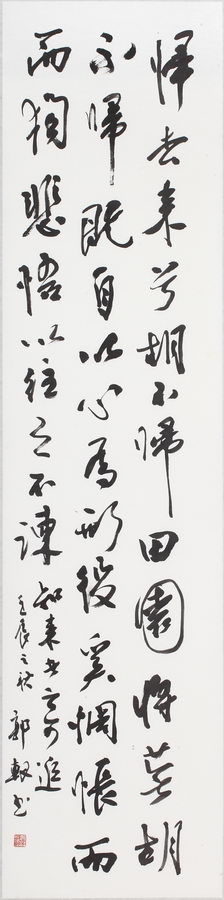 歸去来兮胡不歸田園将蕪胡
不歸既自以心為形役奚惆悵而
而獨悲悟以往之不諫
知来者之可追
壬辰之秋
郭 书